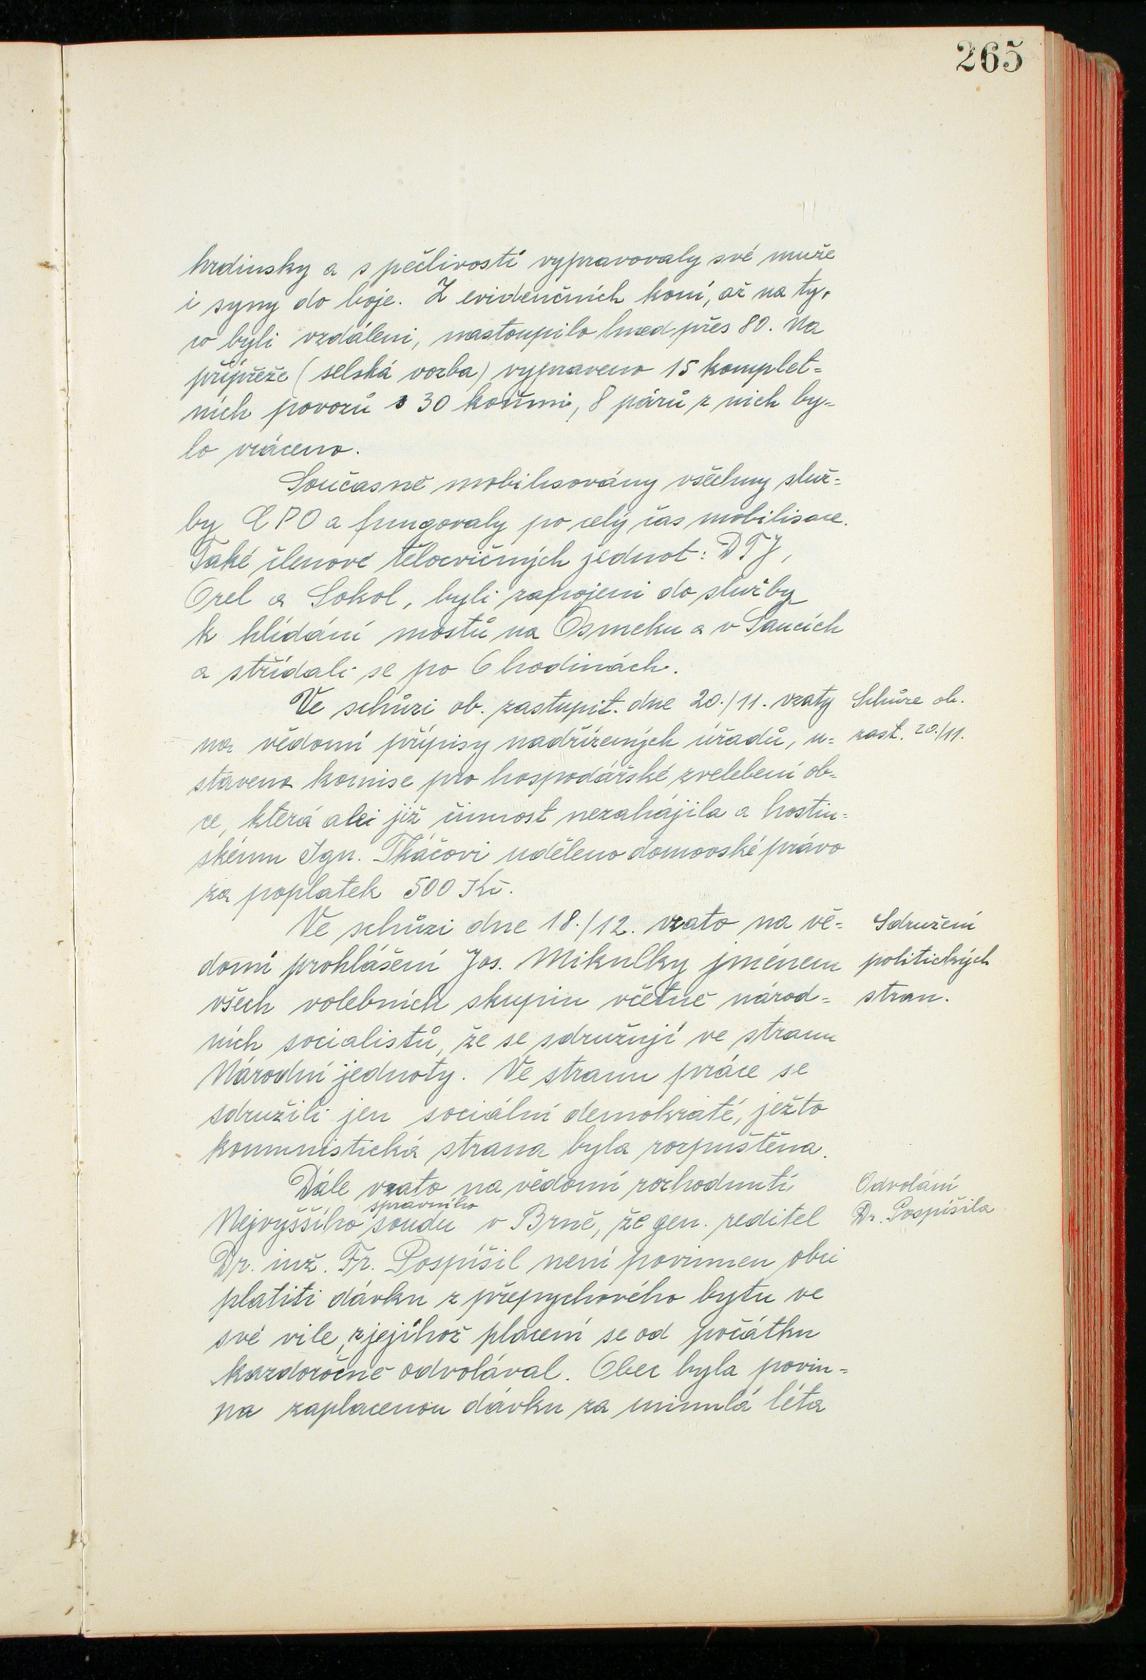 265
hrdinsky a s pečlivostí vypravovaly své muže
i syny do boje. Z evidenčních koní, až na ty,
co byli vzdáleni, nastoupilo hned přes 80. Na
přípřeže (selská vozba) vypraveno 15 komplet=
ních povozů s 30 koňmi, 8 párů z nich by=
lo vráceno.
Současně mobilisovány všechny služ=
by CPO a fungovaly po celý čas mobilisace.
Také členové tělocvičných jednot: DTJ,
Orel a Sokol, byli zapojeni do služby
k hlídání mostů na Osmeku a v Saucích
a střídali se po 6 hodinách.
Ve schůzi ob. zastupit. dne 20./11. vzaty
na vědomí přípisy nadřízených úřadů, u=
stavena komise pro hospodářské zvelebení ob=
ce, která alei již činnost nezahájila a hostin=
skému Ign. Tkáčovi uděleno domovské právo
za poplatek 500 Kč.
Schůze ob.
zast. 20./11.
Ve schůzi dne 18./12. vzato na vě=
domí prohlášení Jos. Mikulky jménem
všech volebních skupin včetně národ=
ních socialistů, že se sdružují ve stranu
Národní jednoty. Ve stranu práce se
sdružili jen sociální demokraté, ježto
komunistická strana byla rozpuštěna.
Sdružení
politických
stran.
Dále vzato na vědomí rozhodnutí
Nejvyššího správního soudu v Brně, že gen. ředitel
Dr. inž. Fr. Pospíšil není povinnen obci
platiti dávku z přepychového bytu ve
své vile, z jejíhož placení se od počátku
každoročně odvolával. Obec byla povin=
na zaplacenou dávku za minulá léta
Odvolání
Dr. Pospíšila